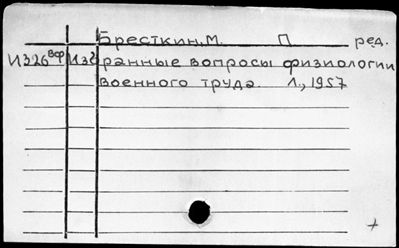 Бресткин, М. П ред.
И326вф Избранные вопросы физиологии
военного труда. Л., 1957
+